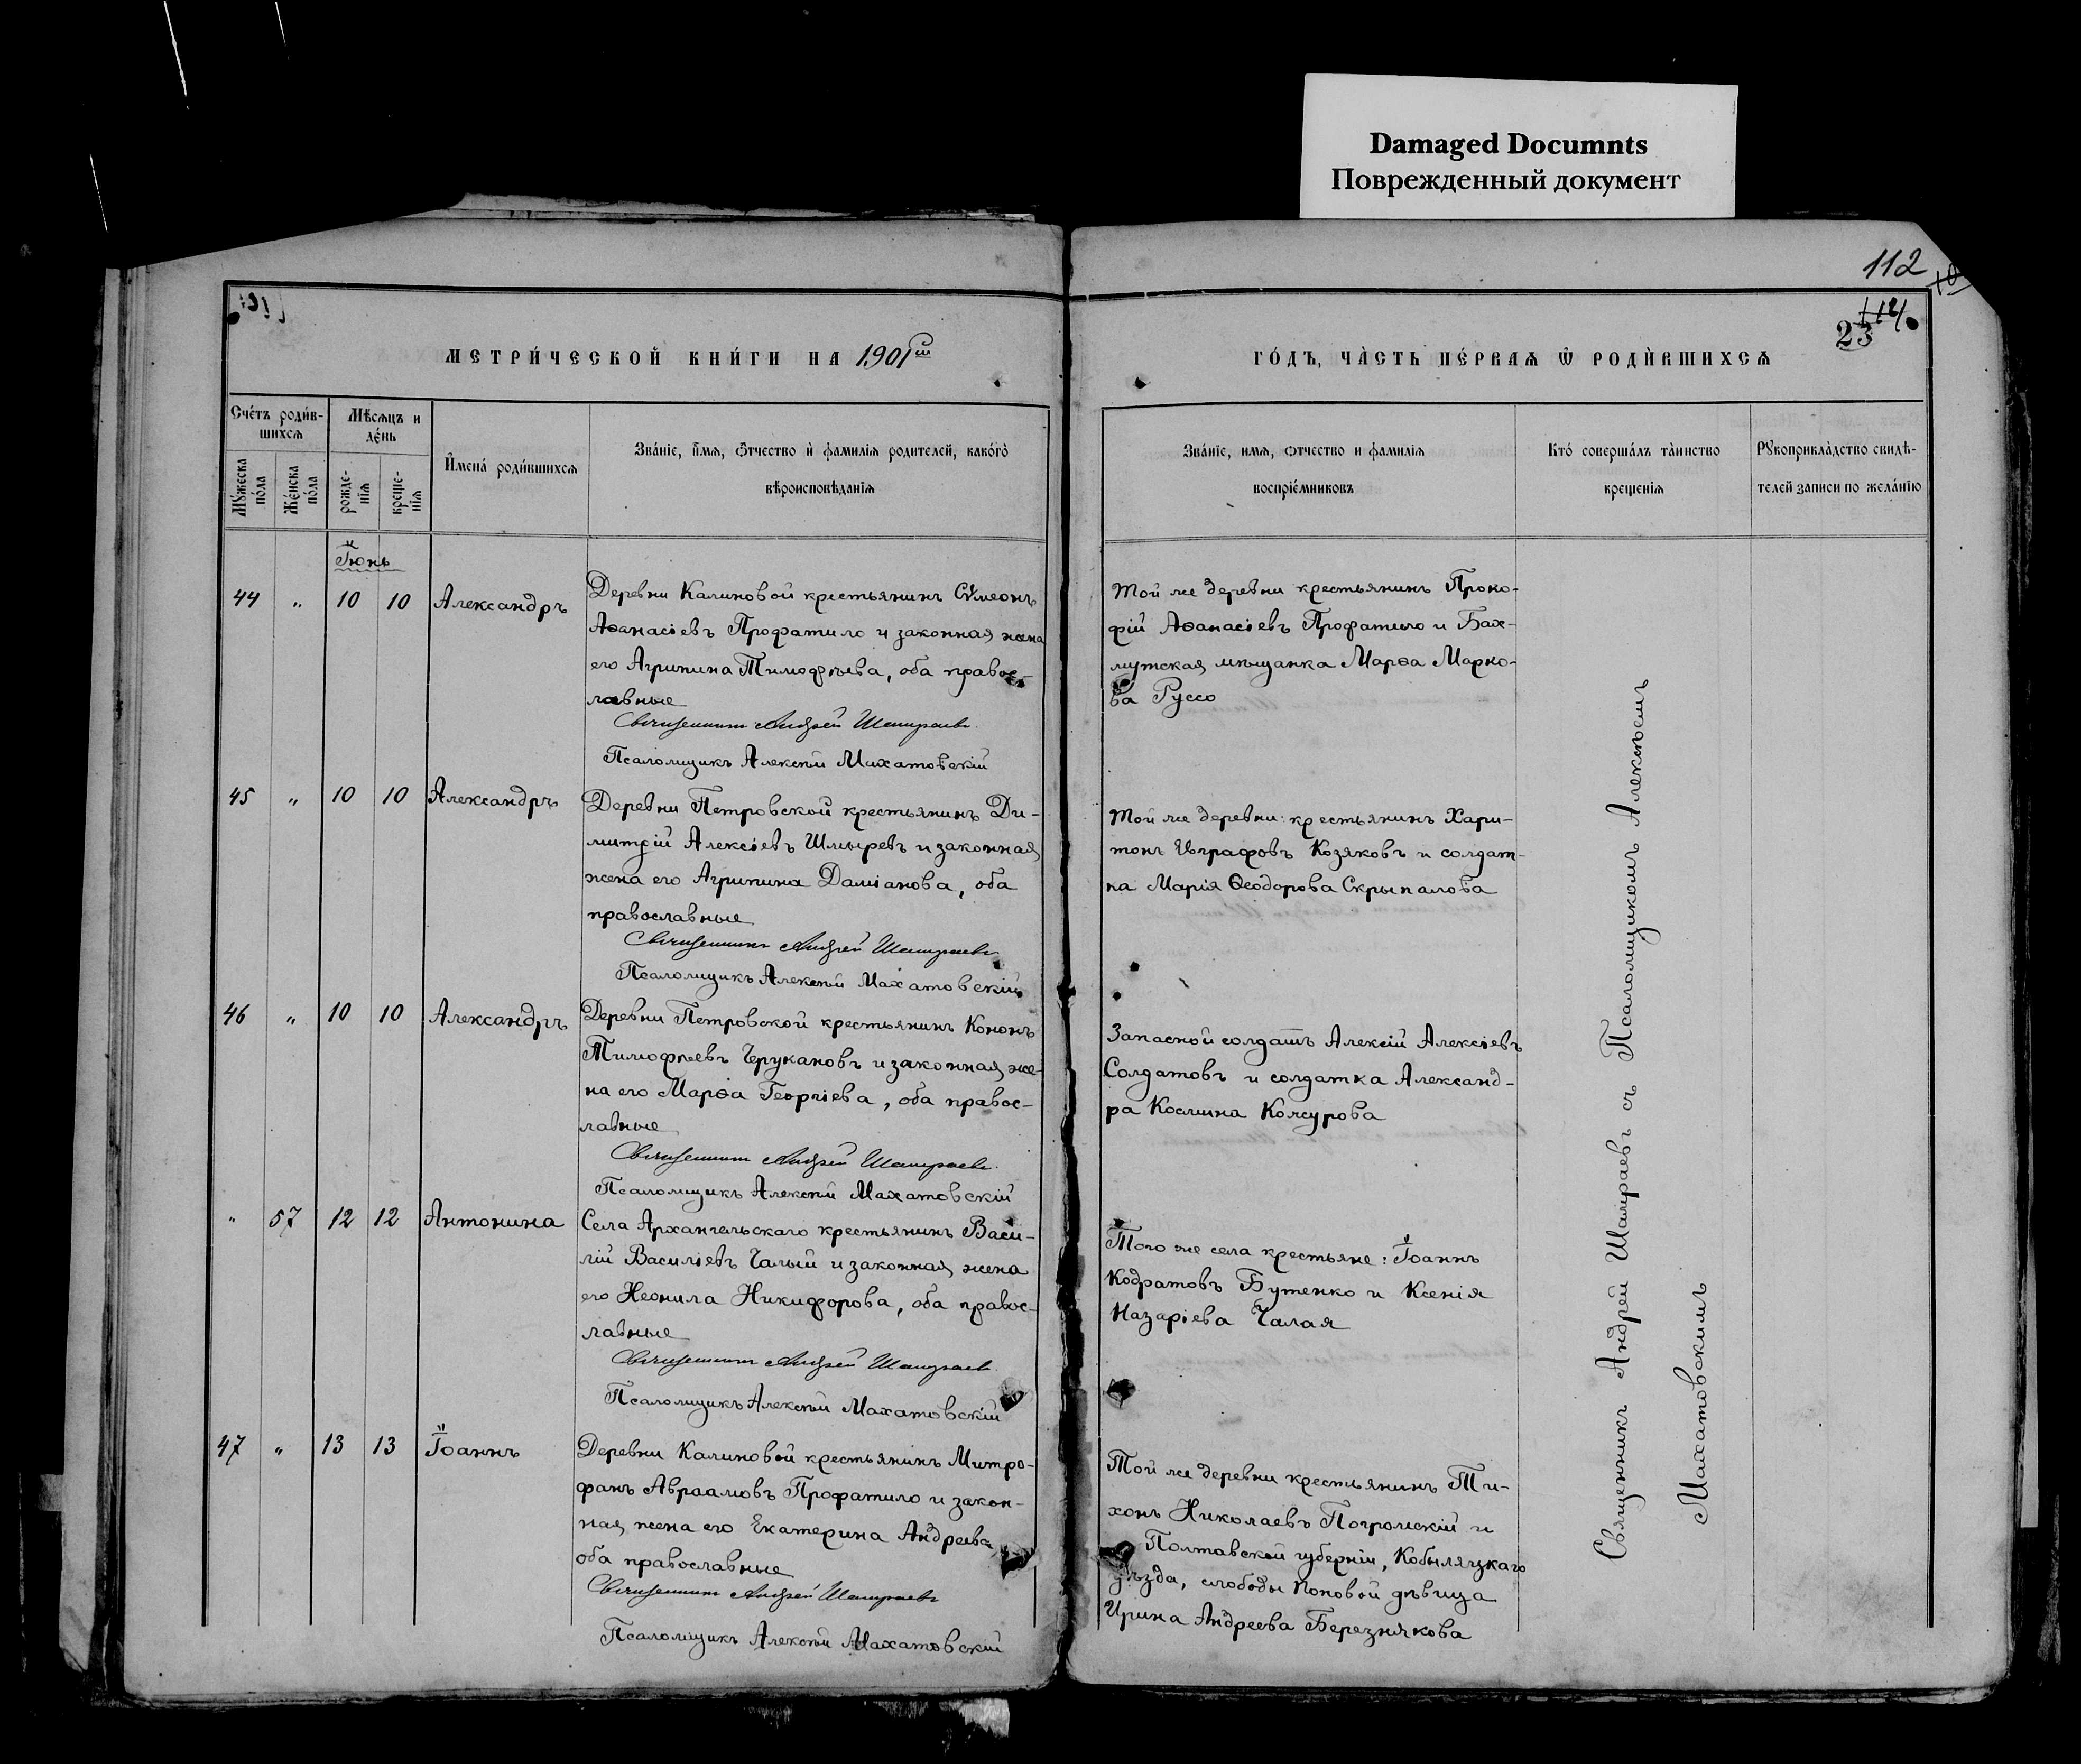 Damaged Documnts
Поврежденный документ
112
23
МЕТРИ́ЧЕСКОЙ КНИ́ГИ НА 1901й
ГО́ДЪ, ЧА̀СТЬ ПЕ́РВАѦ Ѿ РОДЍВШИХСѦ
Сче́тъ роди́в-
шихсѧ
Мѣсѧцъ и
де́нь
Мꙋ́жеска
по́ла
Же́нска
по́ла
рожде-
нїѧ
креще-
нїѧ
И̓мена́ роди́вшихсѧ
Зва́нїе, и̓́мѧ, ѻ́тчество и̓ фамилїѧ родителей, како́гѡ
вѣроисповѣданїѧ
Зва́нїе, имѧ, ѻтчество и фамилїѧ
воспрїе́мниковъ
Кто́ соверша́лъ та̀инство
крещенїѧ
Рꙋкоприкла̀дство свидѣ-
телей записи по жела́нїю
Іюнь
44 " 10 10 Александръ
Деревни Калиновой крестьянинъ Сѵмеонъ
Аѳанасіевъ Профатило и законная жена
его Агрипина Тимофѣева, оба правос-
лавные
Священникъ Андрей Шамраевъ
Псаломщикъ Алексѣй Махатовскій
Той же деревни крестьянинъ Проко-
фій Аѳанасіевъ Профатило и Бах-
мутская мѣщанка Марѳа Марко-
ва Руссо
45 " 10 10 Александръ
Деревни Петровской крестьянинъ Ди-
митрій Алексіевъ Шмыревъ и законная
жена его Агрипина Даміанова, оба
православные
Священникъ Андрей Шамраевъ
Псаломщикъ Алексѣй Махатовскій
Той же деревни: крестьянинъ Хари-
тонъ Евграфовъ Козяковъ и солдат-
ка Марія Ѳеодорова Скрыпалова
46 " 10 10 Александръ
Деревни Петровской крестьянинъ Кононъ
Тимофѣевъ Черукановъ и законная же-
на его Марѳа Георгіева, оба правос-
лавные
Священникъ Андрей Шамраевъ
Псаломщикъ Алексѣй Махатовскій
Запасной солдатъ Алексій Алексіевъ
Солдатовъ и солдатка Александ-
ра Космина Кожурова
" 57 12 12 Антонина
Села Архангельскаго крестьянинъ Васи-
лій Василіевъ Чалый и законная жена
его Неонила Никифорова, оба правос-
лавные
Священникъ Андрей Шамраевъ
Псаломщикъ Алексѣй Махатовскій
Того же села крестьяне: Іоаннъ
Кодратовъ Бутенко и Ксенія
Назаріева Чалая
47 " 13 13 Іоаннъ
Деревни Калиновой крестьянинъ Митро-
фанъ Авраамовъ Профатило и закон-
ная жена его Екатерина Андреева
оба православные
Священникъ Андрей Шамраевъ
Псаломщикъ Алексѣй Махатовскій
Той же деревни крестьянинъ Ти-
хонъ Николаевъ Погромскій и
Полтавской губерніи, Кобыляцкаго
уѣзда, слободы Поповой дѣвица
Ирина Андреева Березнякова
Священникъ Андрей Шамраевъ съ Псаломщикомъ Алексѣемъ
Махатовскимъ